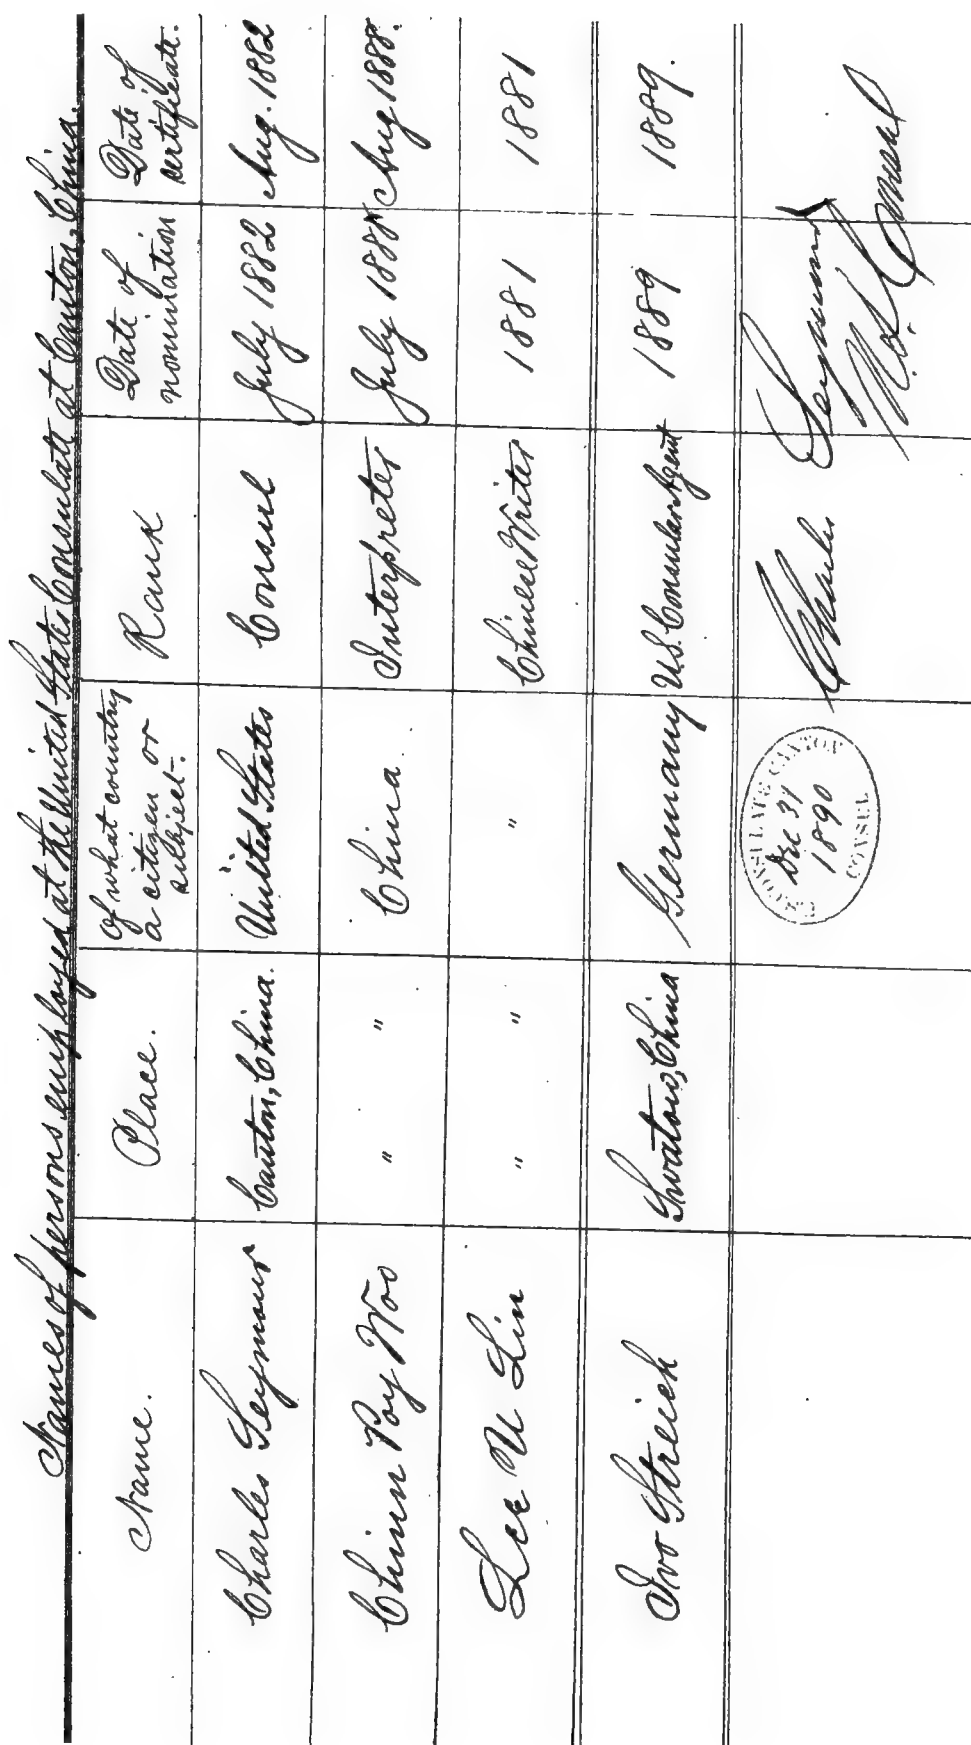 Names of persons employed at the United States Consulate at Canton, China.
Name. Place. Of what country a citizen or subject. Rank Date of nomination Date of certificate.
Charles Seymour Canton, China. United States Consul July 1882 Aug. 1882
Chinn Poy Woo " " China Interpreter July 1888 Aug 1888.
Lee U Lin " " " Chinese Writer 1881 1881
Ivo Streich Swatow, China Germany U.S. Consular Agent 1889 1889.
CONSULATE CANTON
Dec 31
1890
Charles Seymour
U.S. Consul